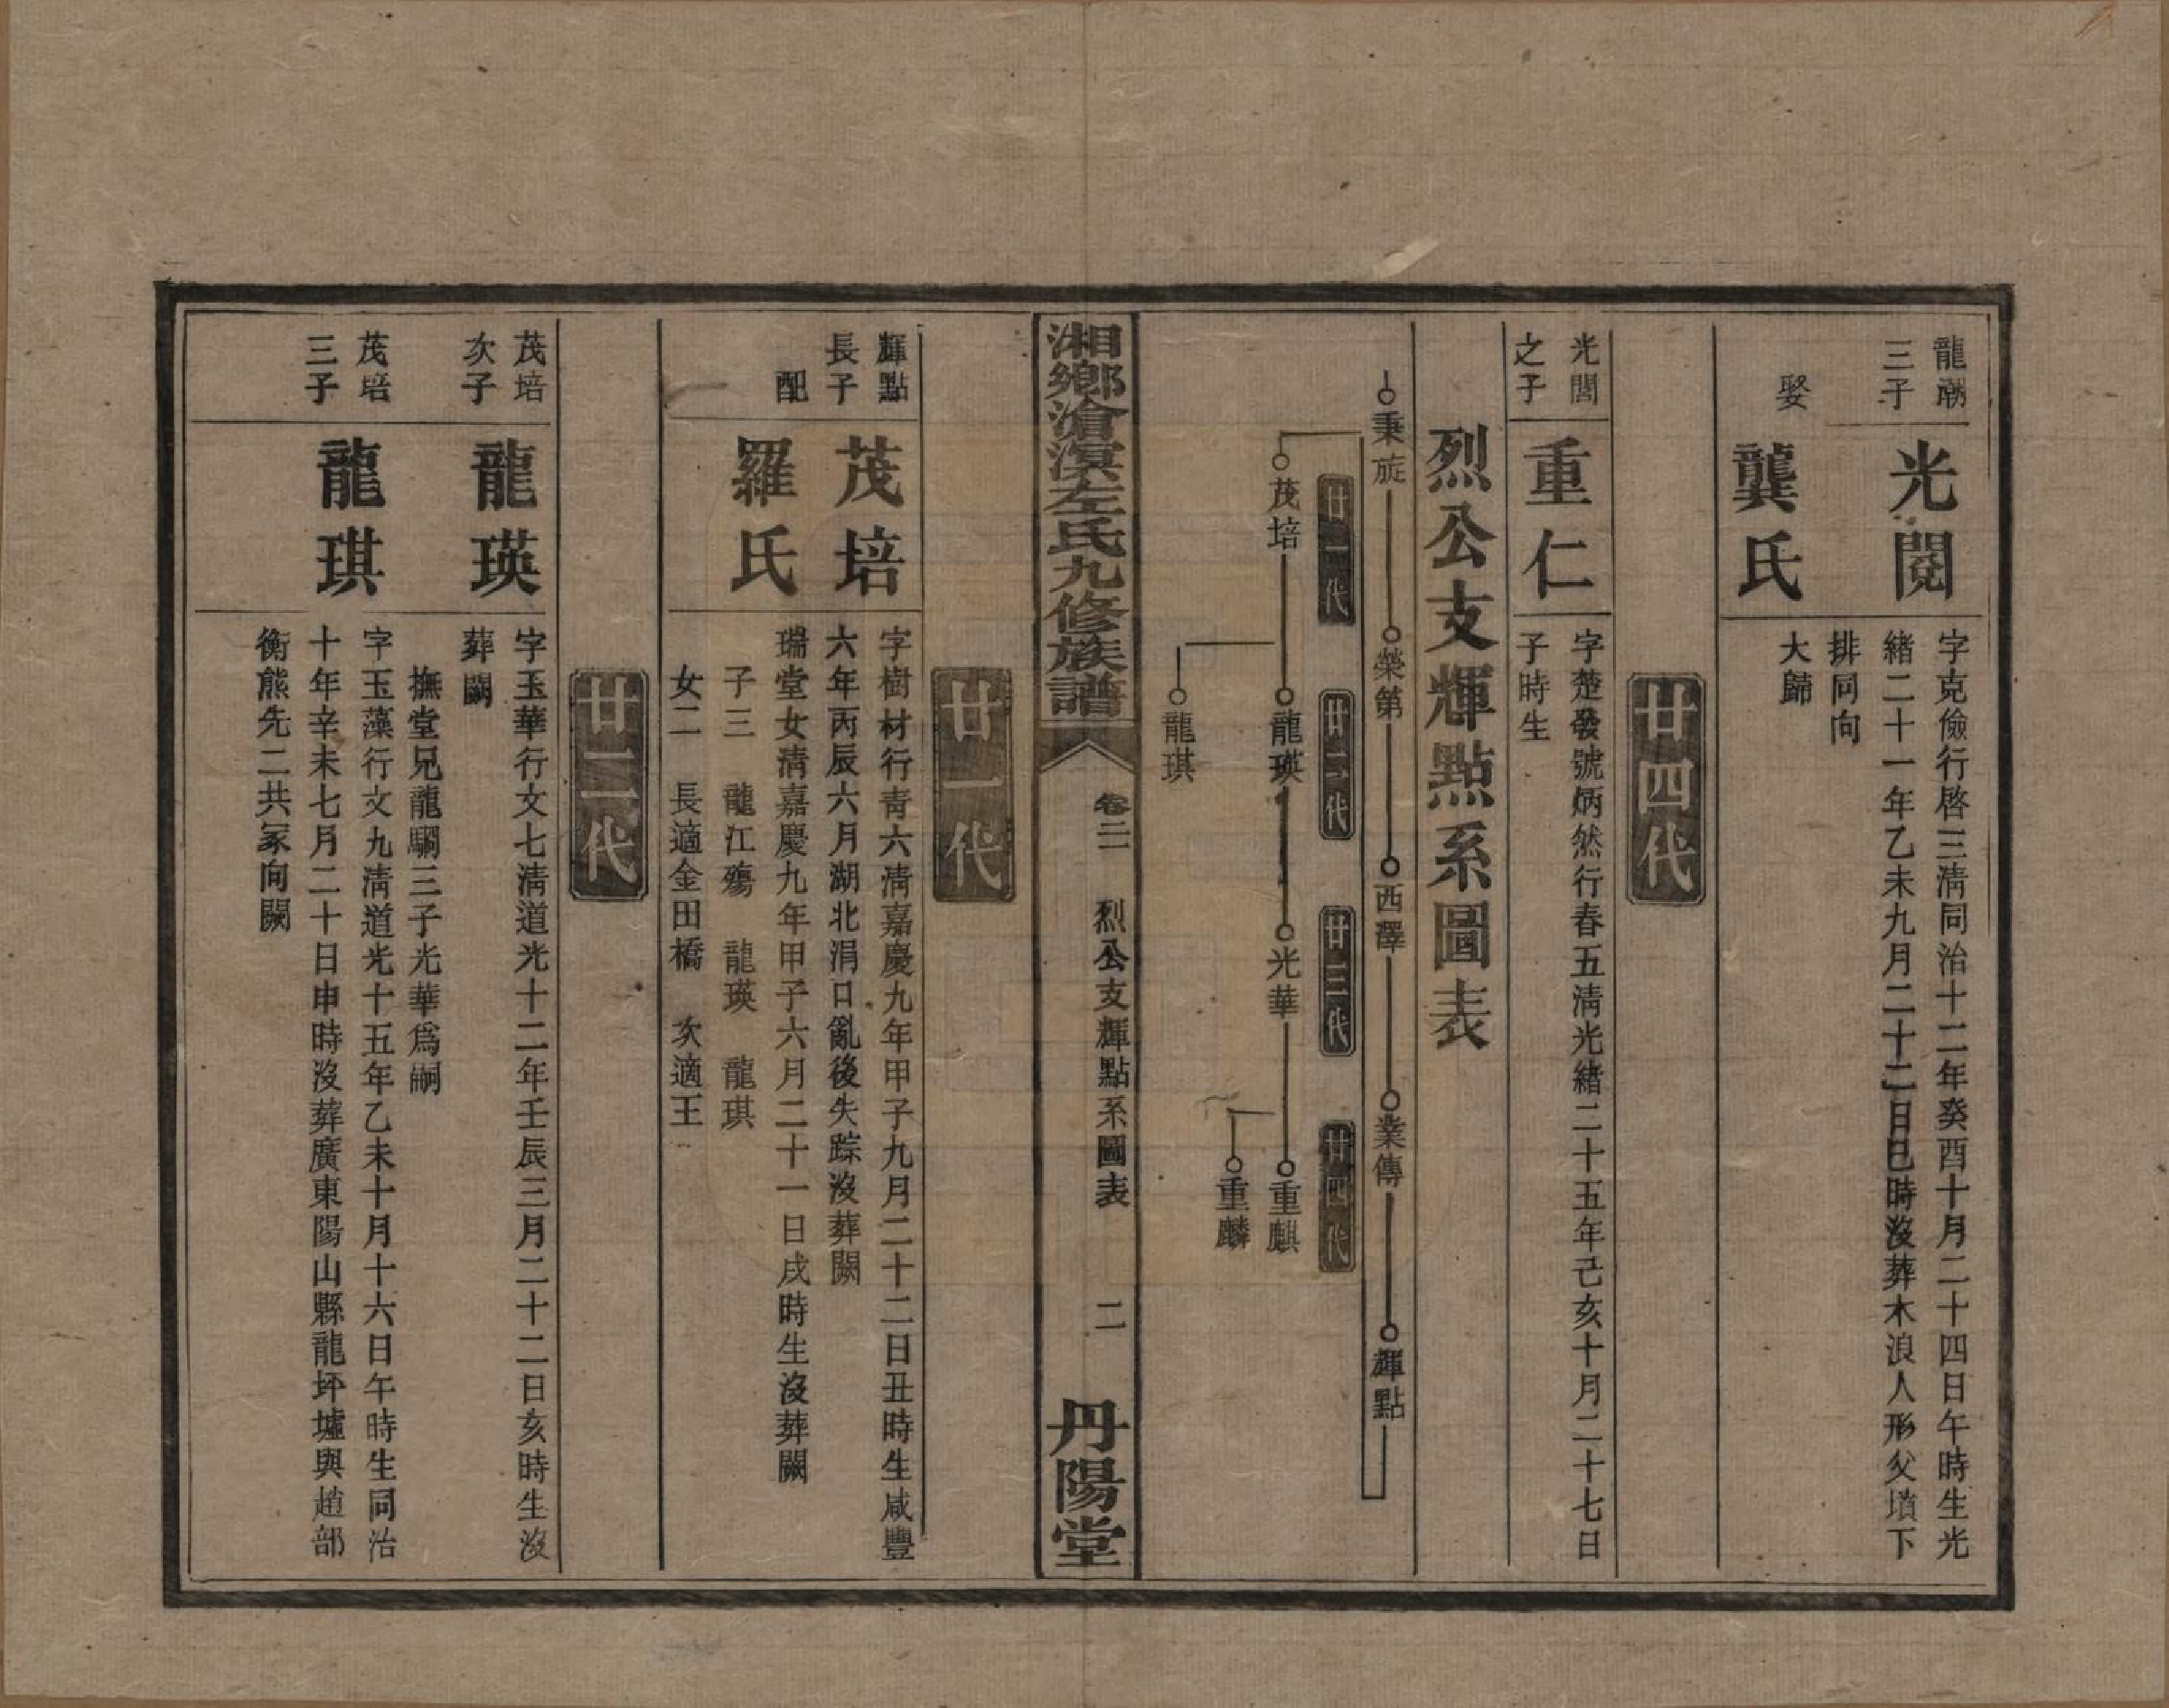 龍潮
三子
光閱
字克儉行啓三清同治十二年癸酉十月二十四日午時生光
緒二十一年乙未九月二十二日巳時沒葬木浪人形父墳下
排同向
娶
龔氏
大歸
廿四代
光閭
之子
重仁
字楚發號炳然行春五清光緒二十五年己亥十月二十七日
子時生
烈公支輝點系圖表
秉旋
榮第
西澤
業傳
輝點
廿一代
廿二代
廿三代
廿四代
茂培
龍瑛
光華
重麒
重麟
龍琪
湘鄉滄溟左氏九修族譜
卷二
烈公支輝點系圖表
二
丹陽堂
廿一代
輝點
長子
茂培
字樹材行青六清嘉慶九年甲子九月二十二日丑時生咸豐
六年丙辰六月湖北涓口亂後失踪沒葬闕
配
羅氏
瑞堂女清嘉慶九年甲子六月二十一日戌時生沒葬闕
子三 龍江殤 龍瑛 龍琪
女二 長適金田橋 次適王
廿二代
茂培
次子
龍瑛
字玉華行文七清道光十二年壬辰三月二十二日亥時生沒
葬闕
撫堂兄龍騆三子光華爲嗣
茂培
三子
龍琪
字玉藻行文九清道光十五年乙未十月十六日午時生同治
十年辛未七月二十日申時沒葬廣東陽山縣龍坪墟與趙部
衡熊先二共冢向闕